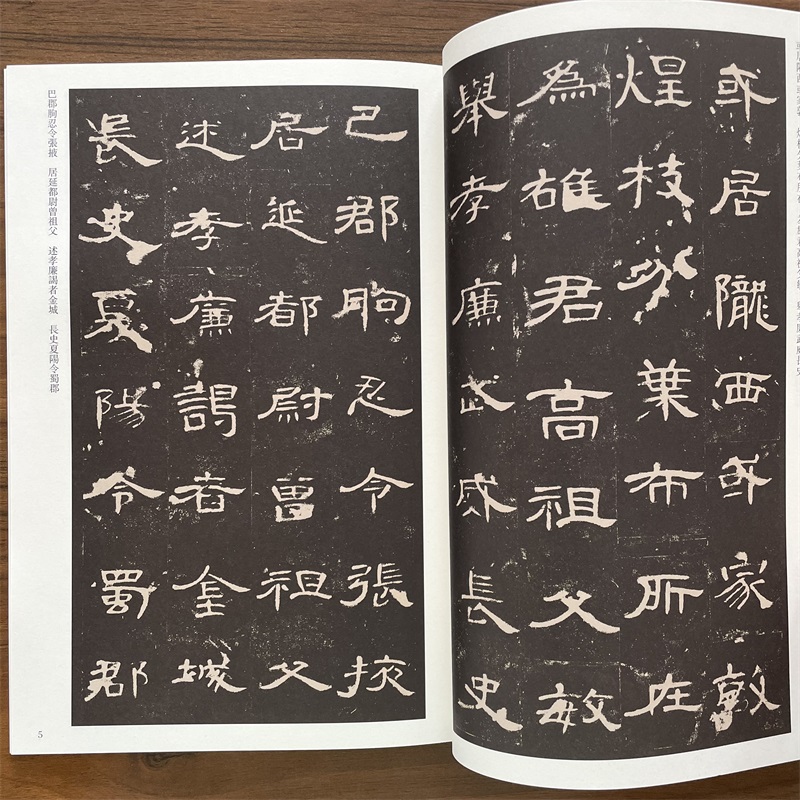 或居隴西或家敦
煌枝分葉布所在
為雄君高祖父敏
舉孝廉武威長史
巴郡朐忍令張掖
居延都尉曾祖父
述孝廉謁者金城
長史夏陽令蜀郡
巴郡朐忍令張掖 居延都尉曾祖父 述孝廉謁者金城 長史夏陽令蜀郡
5